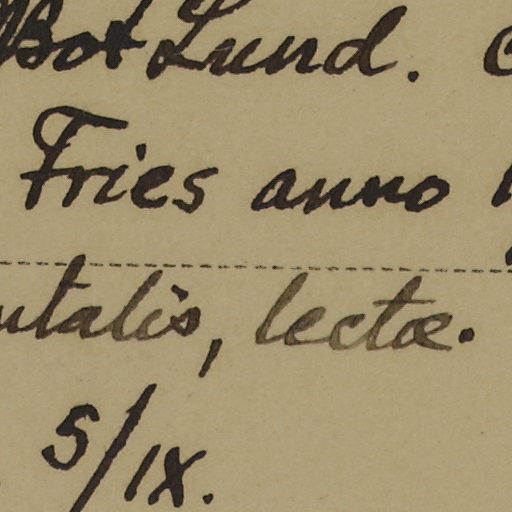 Bot Lund.
Fries anno
ntalis, lectæ.
5/IX.